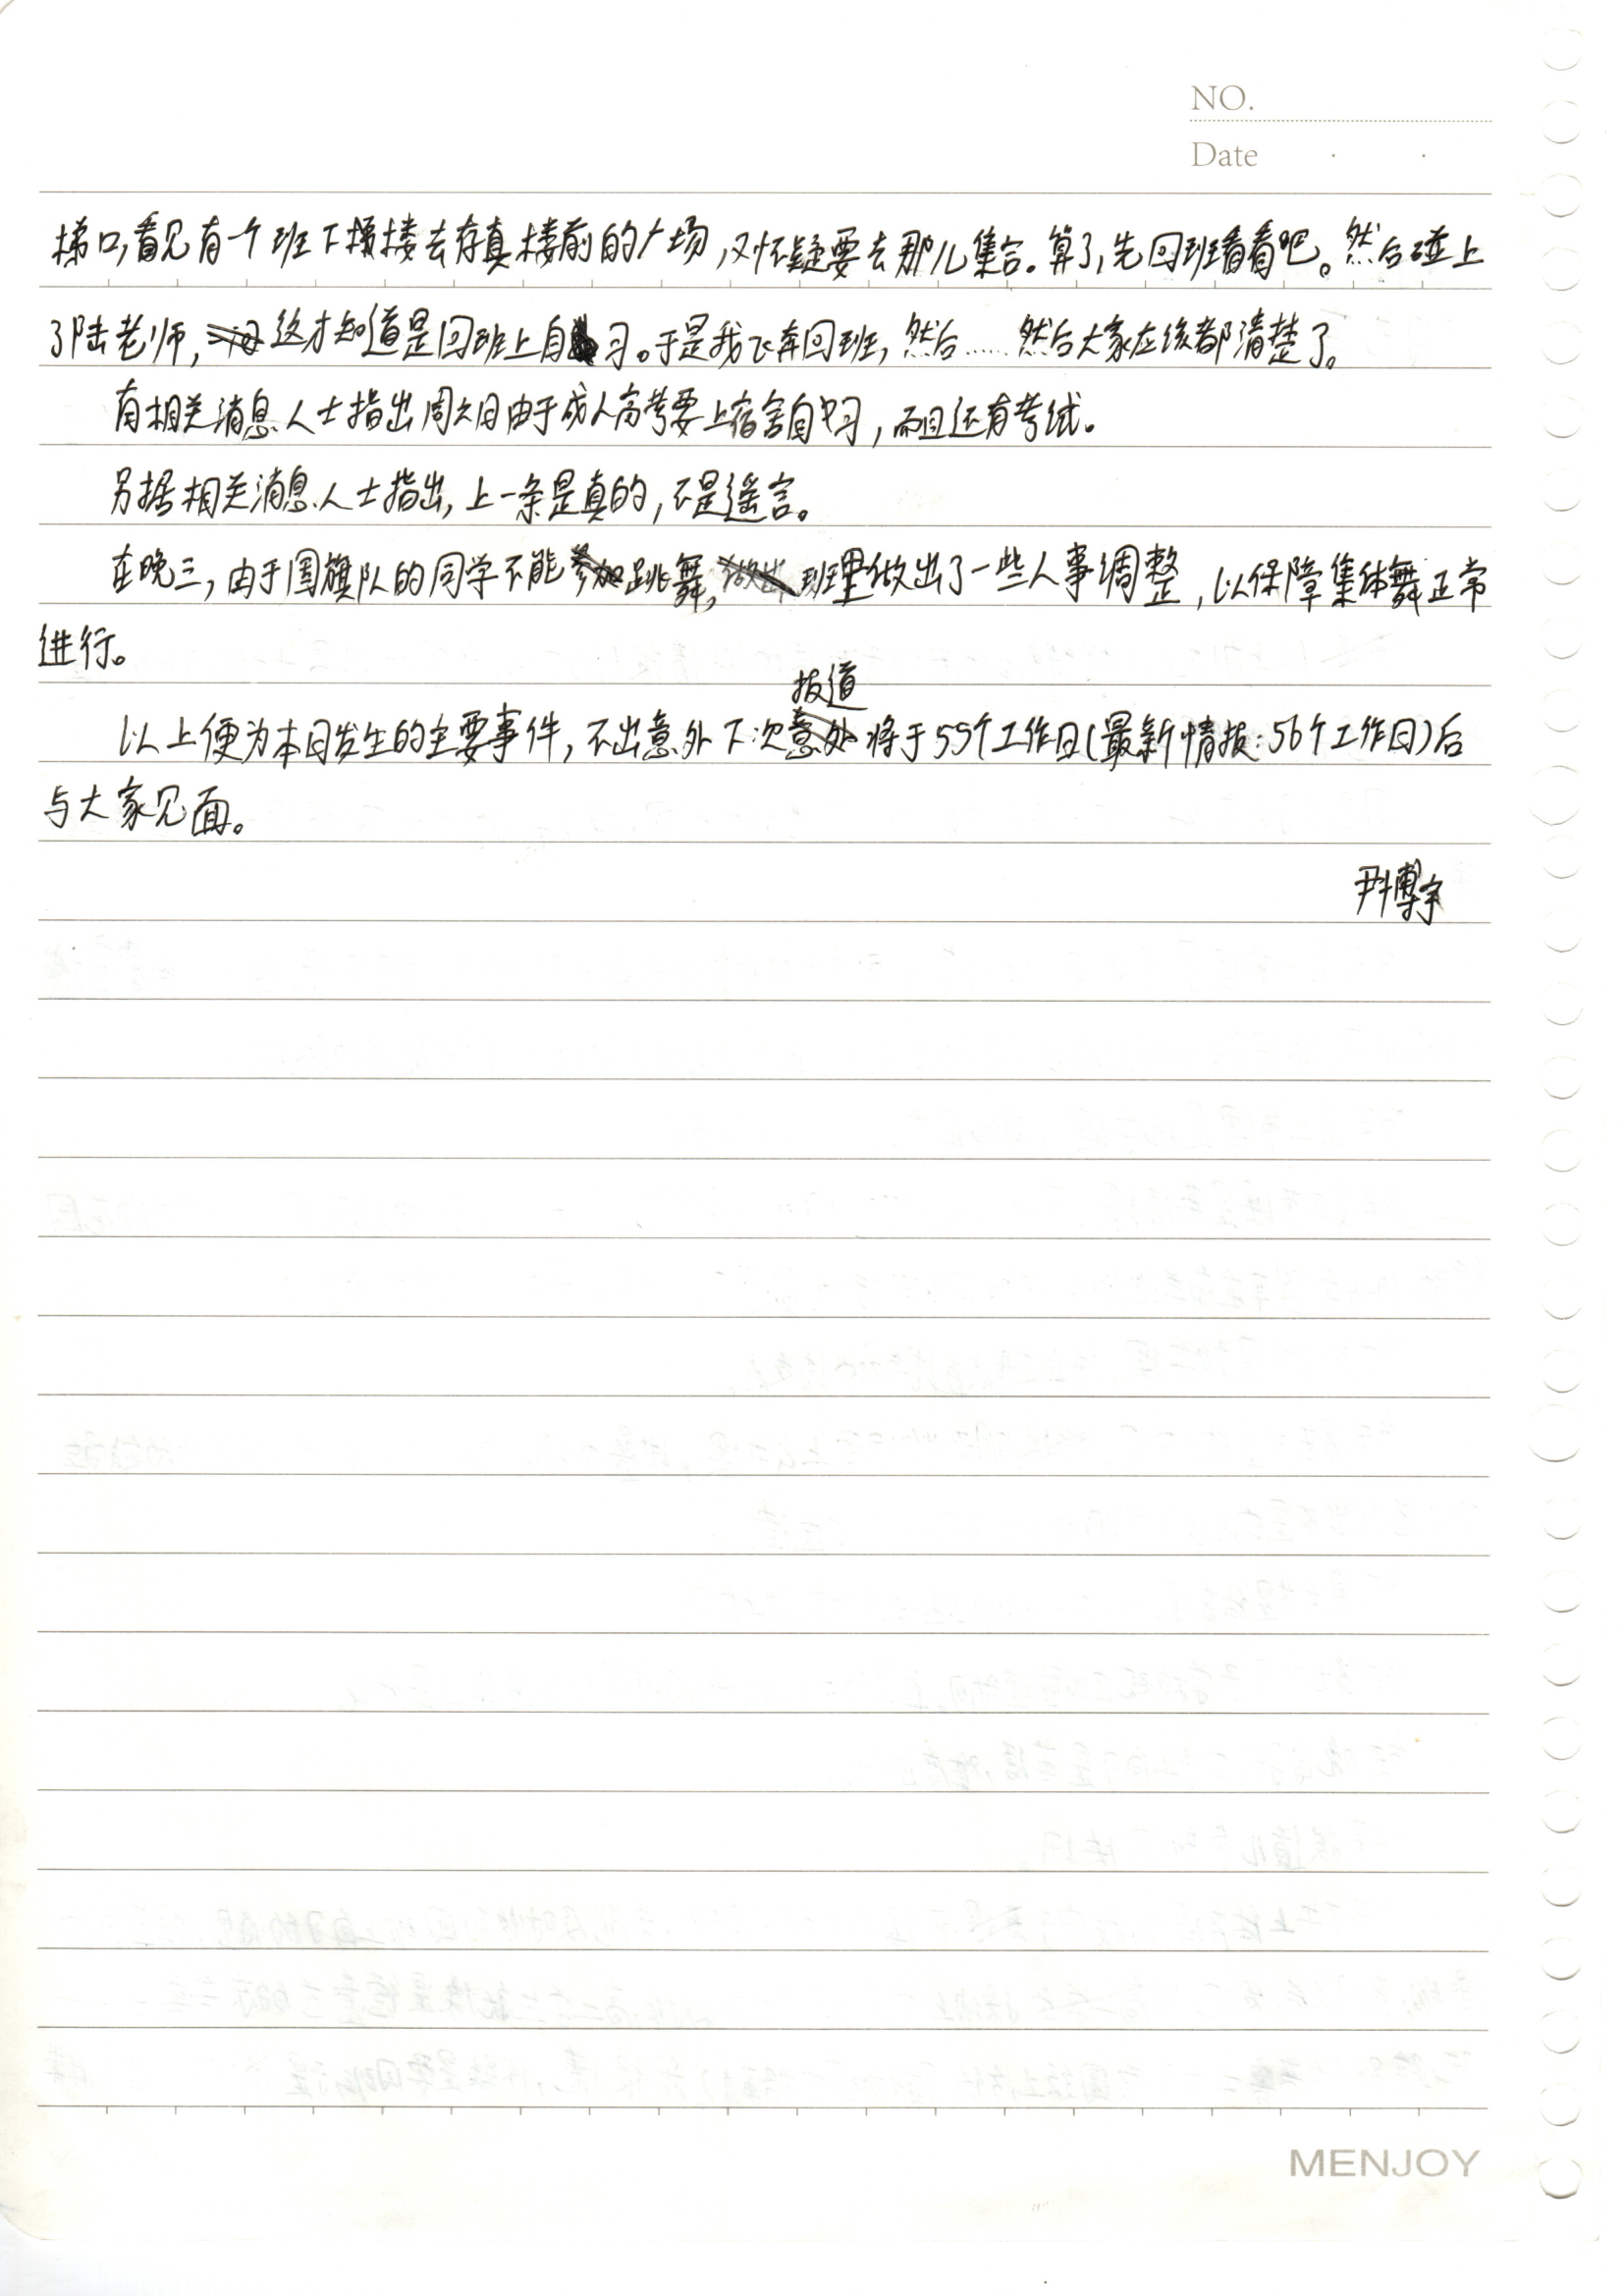 NO.
Date
梯口,看见有个班下楼去存真楼前的广场,又怀疑要去那儿集合。算了,先回班看看吧。然后碰上
了陆老师,这才知道是回班上自习。于是我飞奔回班,然后……然后大家应该都清楚了。
有相关消息人士指出周六日由于成人高考要上宿舍自习,而且还有考试。
另据相关消息人士指出,上一条是真的,不是谣言。
在晚三,由于国旗队的同学不能跳舞,班里做出了一些人事调整,以保障集体舞正常
进行。
报道
以上便为本日发生的主要事件,不出意外下次将于55个工作日(最新情报:56个工作日)后
与大家见面。
博宇
MENJOY